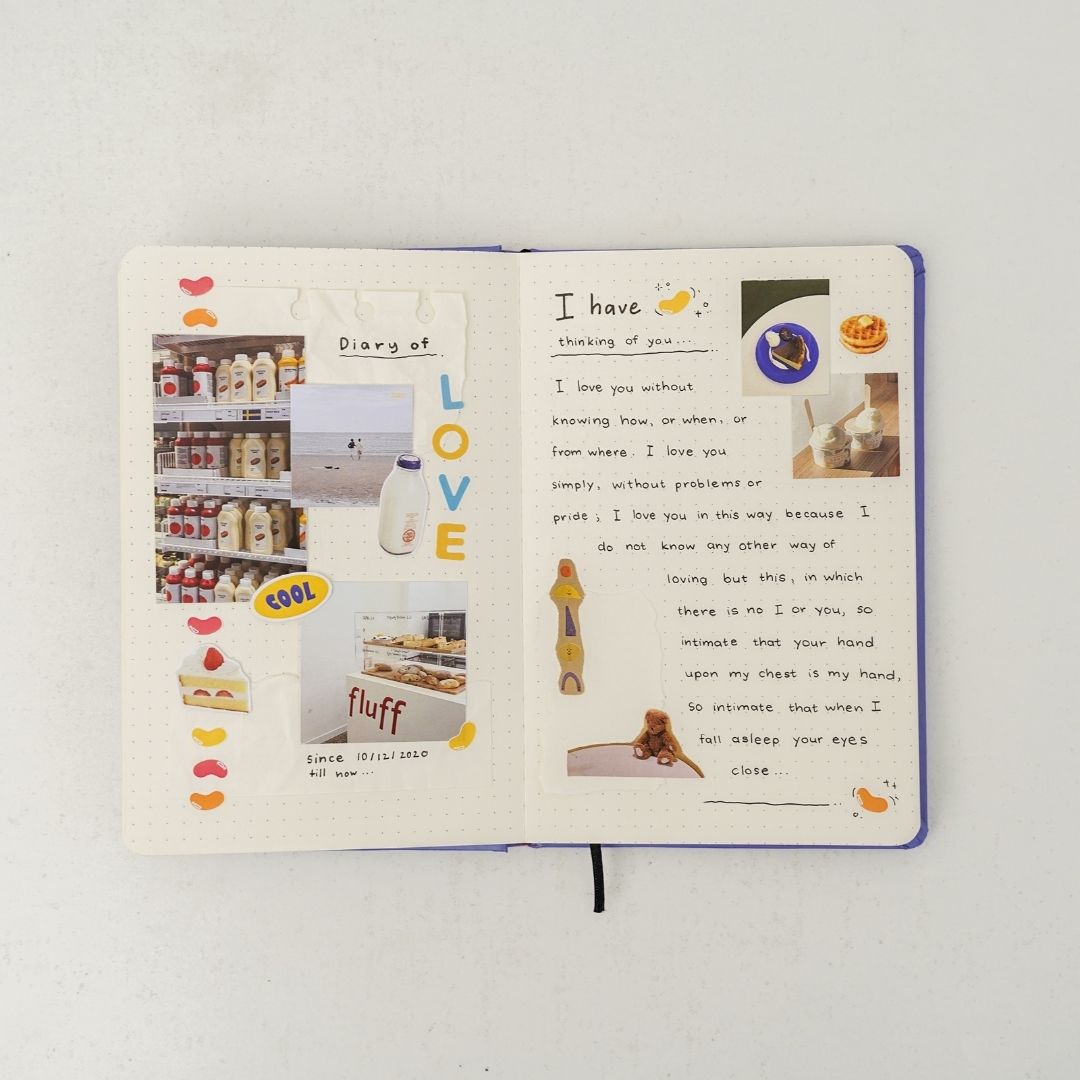 Diary of
LOVE
COOL
fluff
Since 10/12/2020
till now...
I have
thinking of you...
I love you without
knowing how, or when, or
from where. I love you
simply, without problems or
pride; I love you in this way because I
do not know any other way of
loving but this, in which
there is no I or you, so
intimate that your hand
upon my chest is my hand,
so intimate that when I
fall asleep your eyes
close...